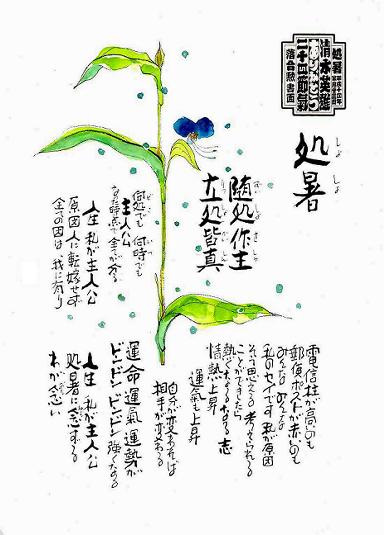 処暑
しょ しょ
随処作主
ずい しょ さ しゅ
立処皆真
何処でも 何時でも
主人公
なった時点で全てが有る
人生 私が主人公
原因 人に転嫁せず
全ての因は 我に有り
電信柱が高いのも
郵便ポストが赤いのも
みんな みんな
私のセイです 私が原因
そう思える 考えられる
ことができたら
熱くなるなる 志
情熱上昇
運気も上昇
自分が変われば
相手が変わる
運命 運氣 運勢が
ドンドン ドンドン 強くなる
人生 私が主人公
処暑に念ずる
わが念い
処暑
二十四節氣
落合勲書画